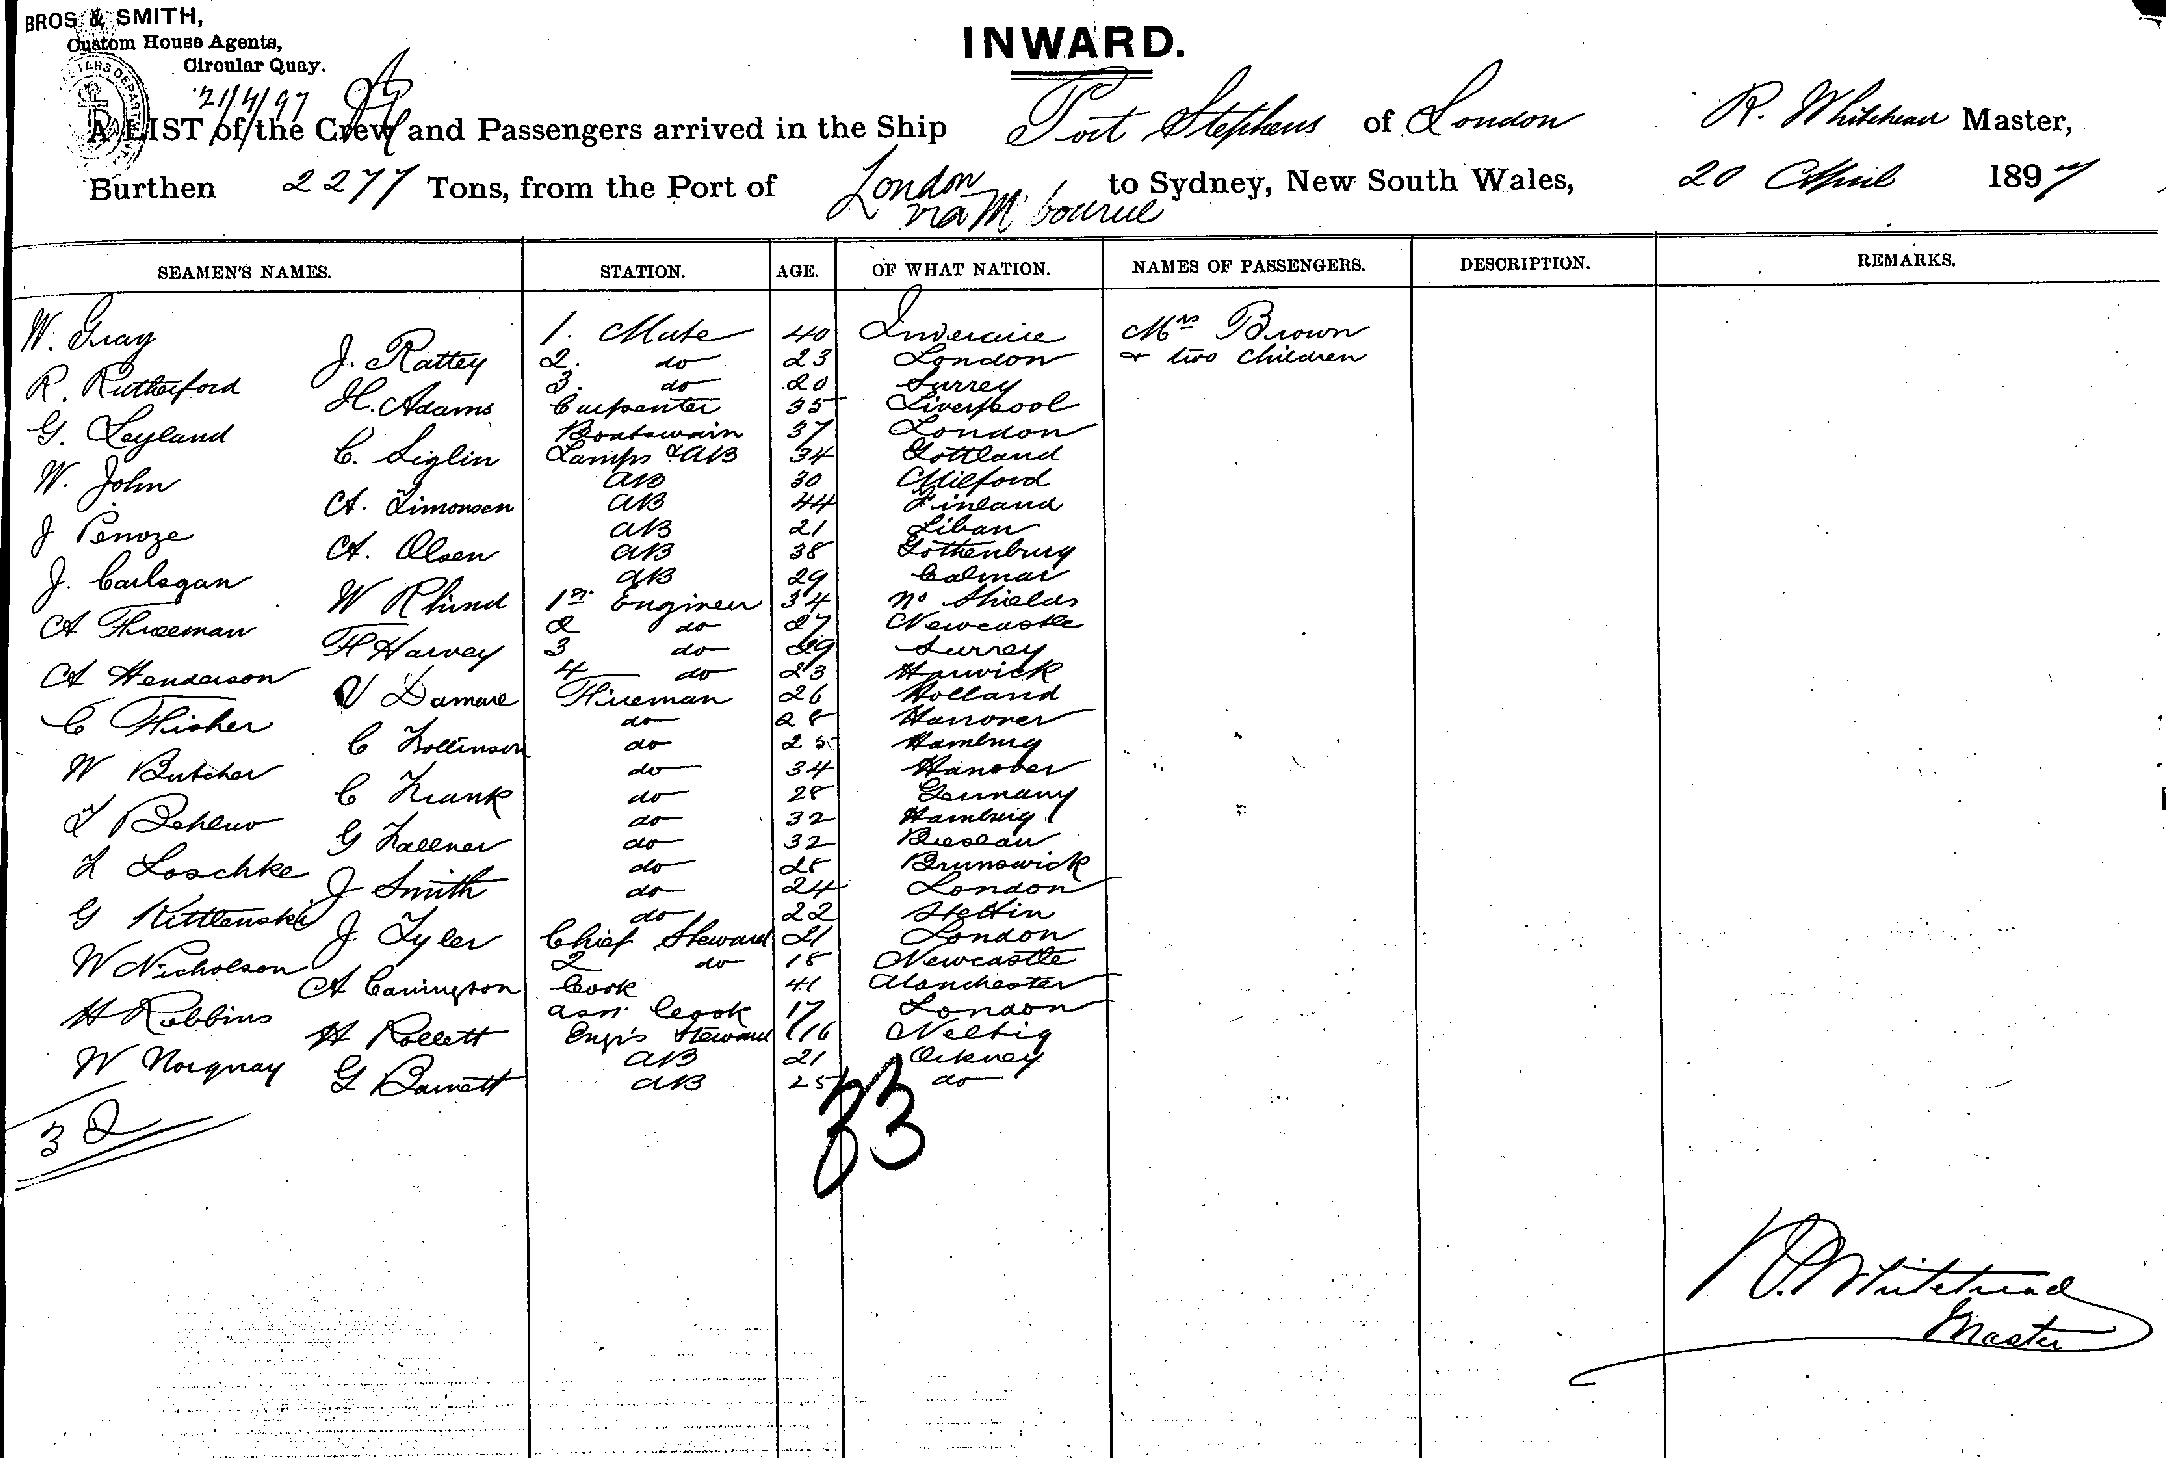 BROS & SMITH,
Custom House Agents,
Circular Quay.
21/4/97
INWARD.
A LIST of the Crew and Passengers arrived in the Ship Port Stephens of London R. Whitehead Master,
Burthen 2277 Tons, from the Port of London via Mbourne to Sydney, New South Wales, 20 April 1897
SEAMEN'S NAMES. STATION. AGE. OF WHAT NATION. NAMES OF PASSENGERS. DESCRIPTION. REMARKS.
W. Gray 1. Mate 40 Mrs Brown
J. Rattey 2. do 23 London & two children
R. Rutherford 3. do 20 Surrey
H. Adams Carpenter 35 Liverpool
G. Leyland Boatswain 37 London
C. Siglin Lamps & AB 34 Gottland
W. John AB 30 Milford
A. Simonsen AB 44 Finland
J Penoze AB 21 Liban
A. Olsen AB 38 Gothenburg
J. Carlsgan AB 29 Calmar
W Rhind 1st Engineer 34 No Shields
A Freeman 2 do 27 Newcastle
F Harvey 3 do 29 Surrey
A Henderson 4 do 23 Harwick
V Damare Fireman 26 Holland
C Fisher do 28 Hanover
C Zollinson do 25 Hamburg
W Butcher do 34 Hanover
C Frank do 28 Germany
do 32 Hamburg
G Zallner do 32 Breslau
Loschke do 25 Brunswick
J Smith do 24 London
G Kittlenski do 22 Stettin
J Tyler Chief Steward 21 London
W Nicholson 2 do 18 Newcastle
A Carrington Cook 41 Manchester
H Robbins asst Cook 17 London
H Rollett Engr's Steward 16
W Norquay AB 21 Orkney
G Barnett AB 25 do
32
33
R. Whitehead
Master